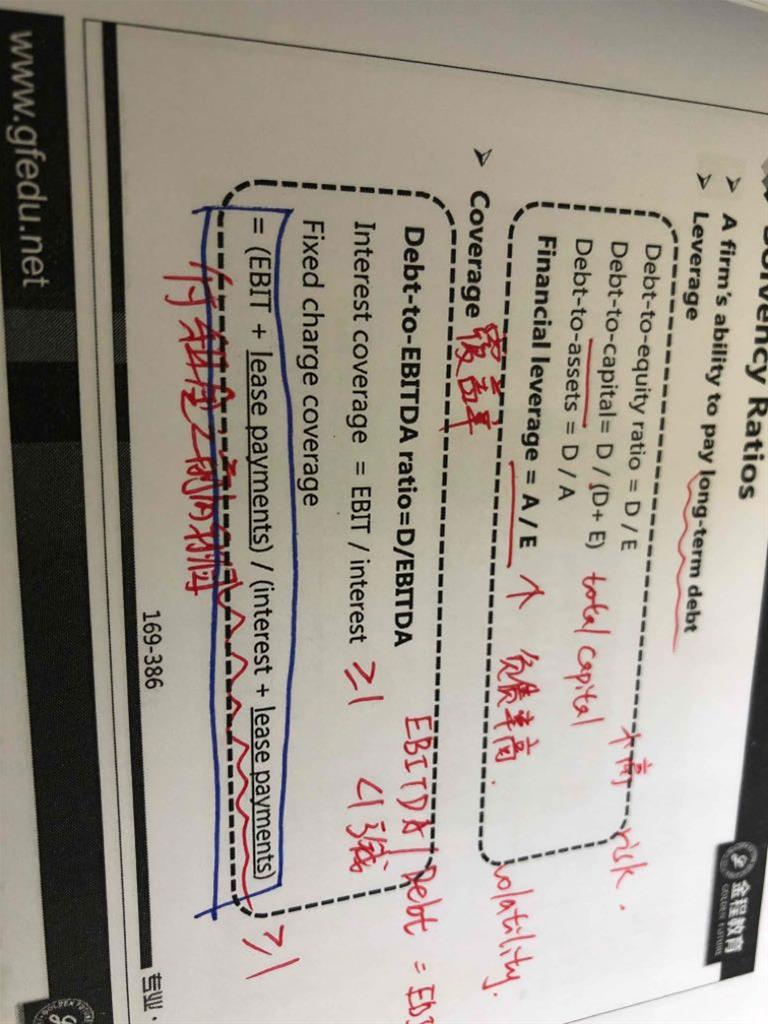 Solvency Ratios
金程教育
GOLDEN FUTURE
➢ A firm's ability to pay long-term debt
➢ Leverage
Debt-to-equity ratio = D / E
Debt-to-capital= D / (D+ E) total capital
Debt-to-assets = D / A
Financial leverage = A / E ↑ 负债率高.
risk.
volatility.
➢ Coverage 覆盖率
Debt-to-EBITDA ratio=D/EBITDA
EBITDA / Debt =
Interest coverage = EBIT / interest ≥1 <1
Fixed charge coverage
= (EBIT + lease payments) / (interest + lease payments) ≥1
169-386
专业·
www.gfedu.net